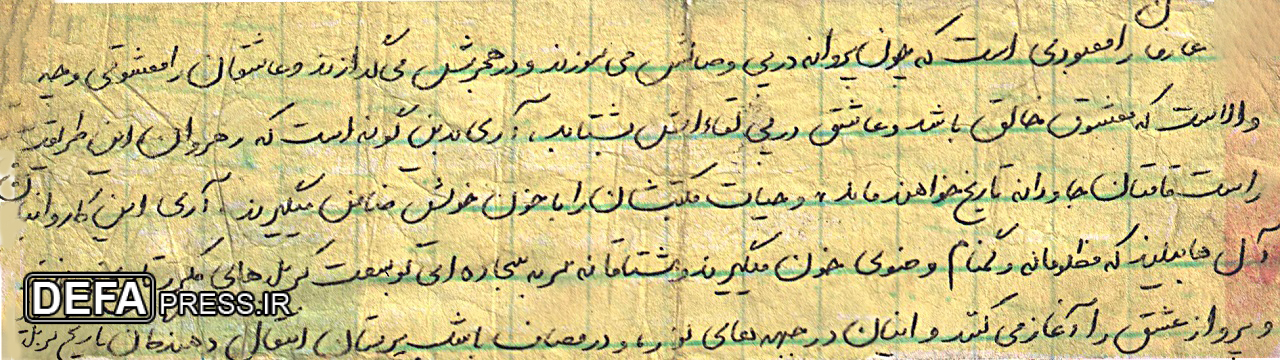 عارفان را معبودی است که چون پروانه در پی وصالش می سوزند و در هجرش می گدازند و عاشقان را معشوقی وجیه
والاست که معشوق خالق باشد و عاشق در پی لقاءاش بشتابد، آری بدین گونه است که رهروان این طریقت
راست قامتان جاودانه تاریخ خواهند ماند، و حیات مکتبشان را با خون خویش ضامن میگیرند. آری این کاروانیان
آل هابیلیند که مظلومانه و گمنام وضوی خون میگیرند و مشتاقانه سر به سجاده ای بوسعت کربلاهای مکرر
و پرواز عشق را آغاز می کنند و اینان در جبهه های نور، و در مصاف با شب پرستان انتقال دهندگان تاریخ کربلا
DEFAPRESS.IR